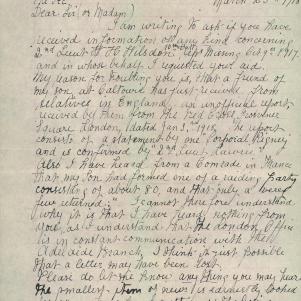 Dear Sir, or Madam)
I am writing to ask if you have
received information of any kind concerning
2nd Lieut. H. Hilsdon, Oct 9th 1917
and in whose behalf I requested your aid.
My reason for troubling you is, that a friend of
my son, at has just received, from
relatives in England, an unofficial report
received by them from the Red Cross, Grosvenor
Square London, dated Jan 1st 1918. The report
consists of a statement by one Corporal
and is confirmed by 2nd Lieut.
Also I have heard from a Comrade in France
that my son had formed one of a raiding party
consisting of about 80, and that only a very
few returned. I cannot therefore understand
why it is that I have heard nothing from
you, as I understand that the London Office
is in constant communication with the
Adelaide Branch. I think it just possible
that a letter may have been lost.
Please do let me know anything you may hear
the smallest item of news is earnestly looked